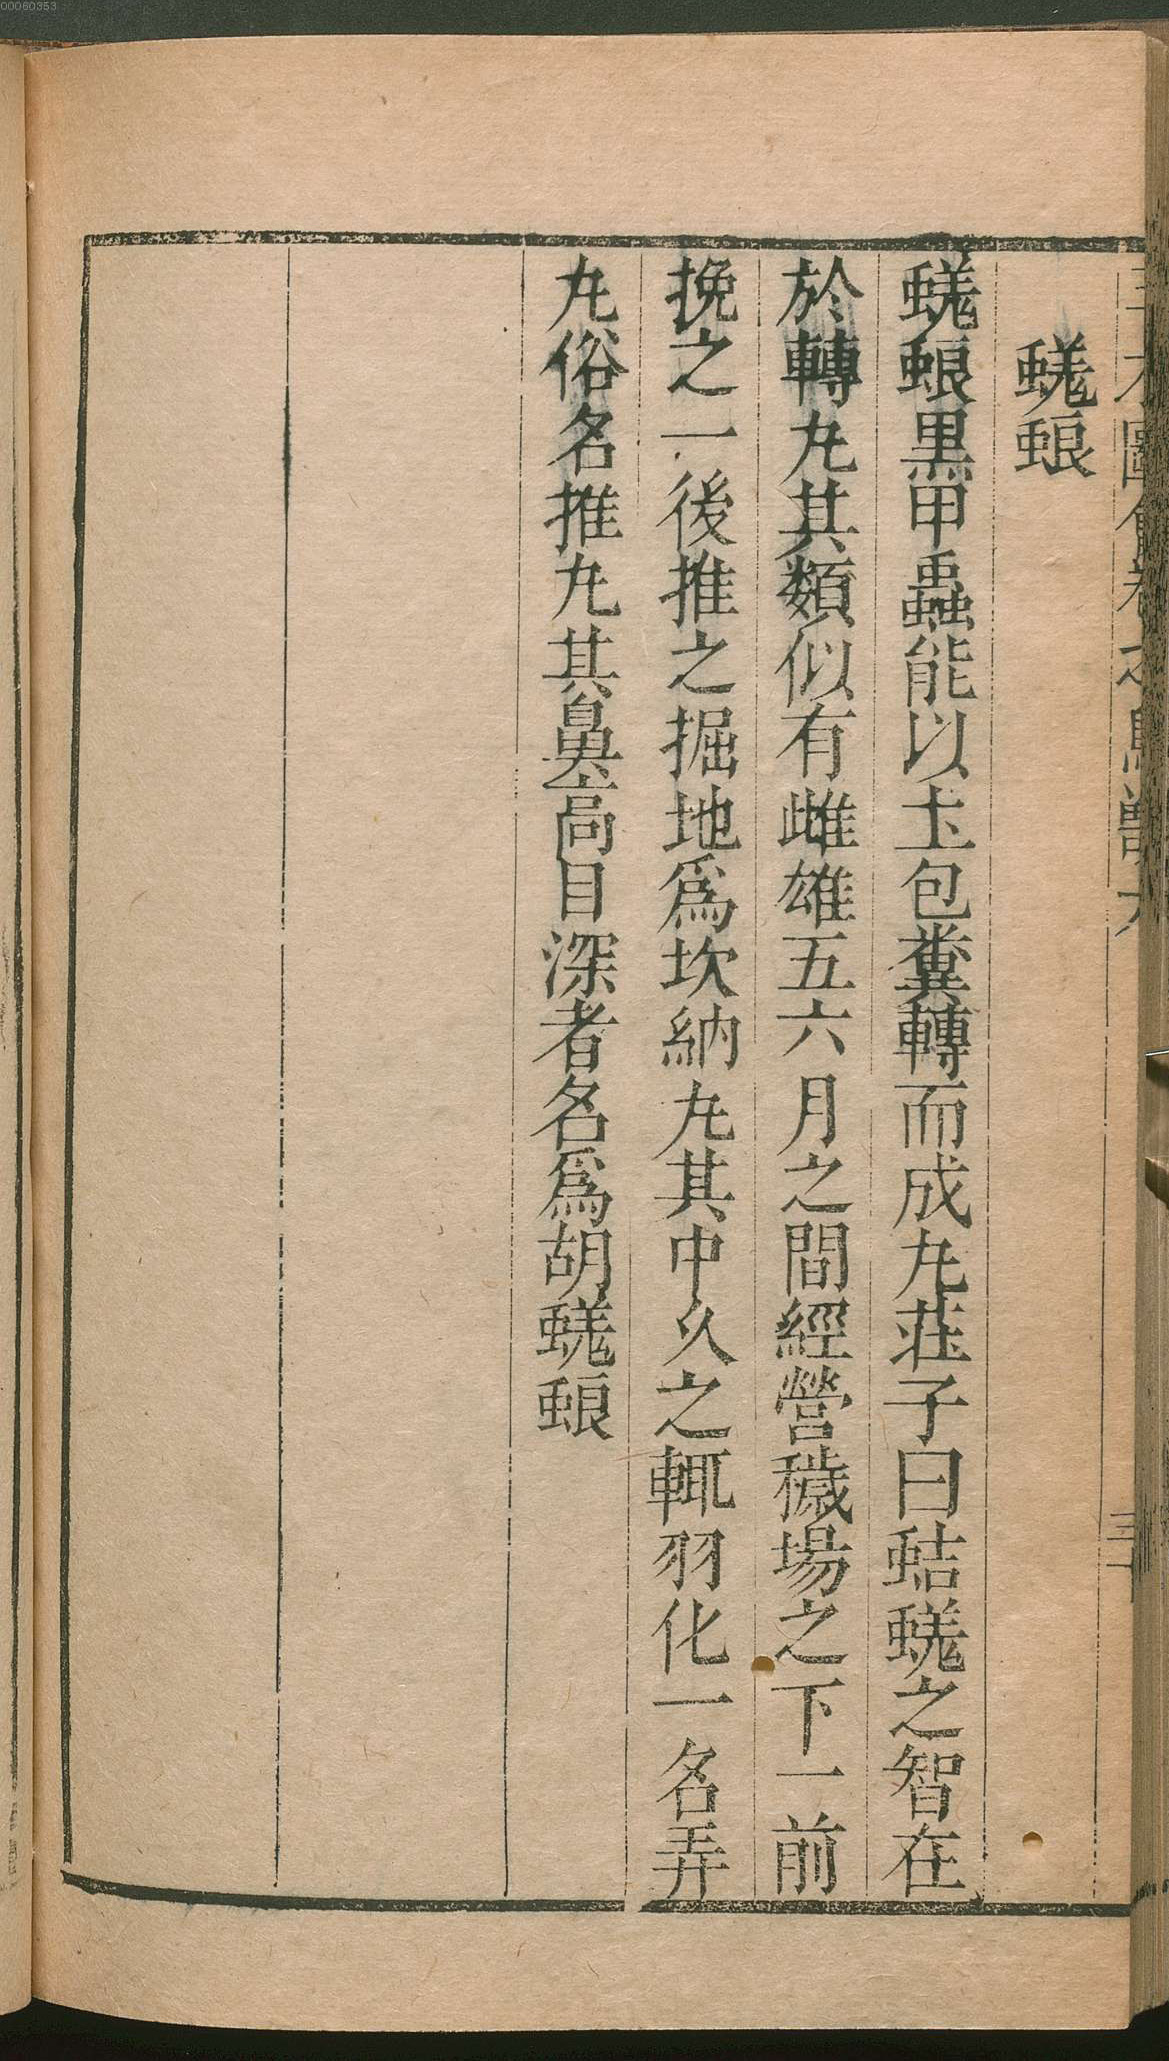 00060353
圖
蜣蜋
蜣蜋黒甲蟲能以土包糞轉而成丸荘子曰蛣蜣之智在
於轉丸其類似有雌雄五六月之間經營穢塲之下一前
挽之一後推之掘地爲坎納丸其中久之輒羽化一名弄
丸俗名推丸其鼻高目深者名爲胡蜣蜋